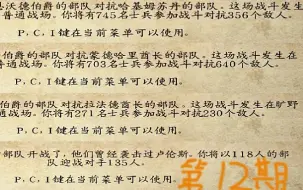 沃德伯爵的部队对抗哈基姆苏丹的部队。这场战斗发生在
普通战场。你将有745名士兵参加战斗对抗356个敌人。
P、C、I键在当前菜单可以使用。
伯爵的部队对抗蒙德哈里酋长的部队。这场战斗发生在
普通战场。你将有703名士兵参加战斗对抗640个敌人。
P、C、I键在当前菜单可以使用。
伯爵的部队对抗拉法德酋长的部队。这场战斗发生在旷野
普通战场。你将有271名士兵参加战斗对抗230个敌人。
P、C、I键在当前菜单可以使用。
部队开战了，他们曾经袭击过卢伦斯。你将以118人的部
队迎战对手135人。
P、C、I键在当前菜单可以使用。
第12期